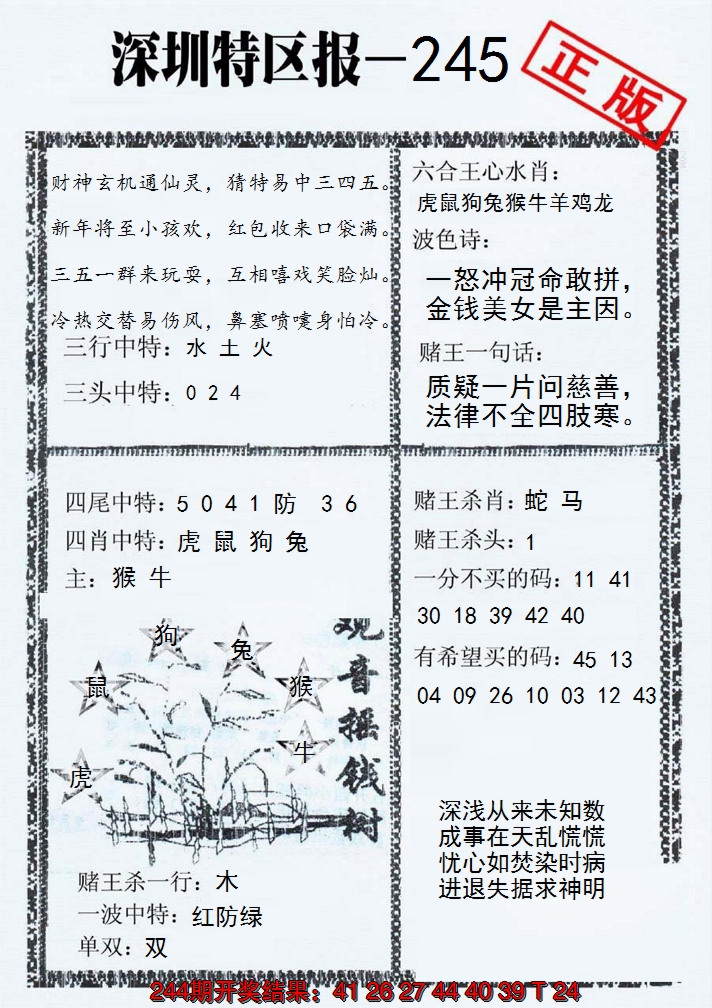 深圳特区报—245
正版
财神玄机通仙灵，猜特易中三四五。
新年将至小孩欢，红包收来口袋满。
三五一群来玩耍，互相嘻戏笑脸灿。
冷热交替易伤风，鼻塞喷嚏身怕冷。
三行中特：水 土 火
三头中特：0 2 4
六合王心水肖：
虎鼠狗兔猴牛羊鸡龙
波色诗：
一怒冲冠命敢拼，
金钱美女是主因。
赌王一句话：
质疑一片问慈善，
法律不全四肢寒。
四尾中特：5 0 4 1 防 3 6
四肖中特：虎 鼠 狗 兔
主：猴 牛
狗
兔
鼠
猴
牛
虎
观音摇钱树
赌王杀一行：木
一波中特：红防绿
单双：双
赌王杀肖：蛇 马
赌王杀头：1
一分不买的码：11 41
30 18 39 42 40
有希望买的码：45 13
04 09 26 10 03 12 43
深浅从来未知数
成事在天乱慌慌
忧心如焚染时病
进退失据求神明
244期开奖结果：41 26 27 44 40 39 T 24